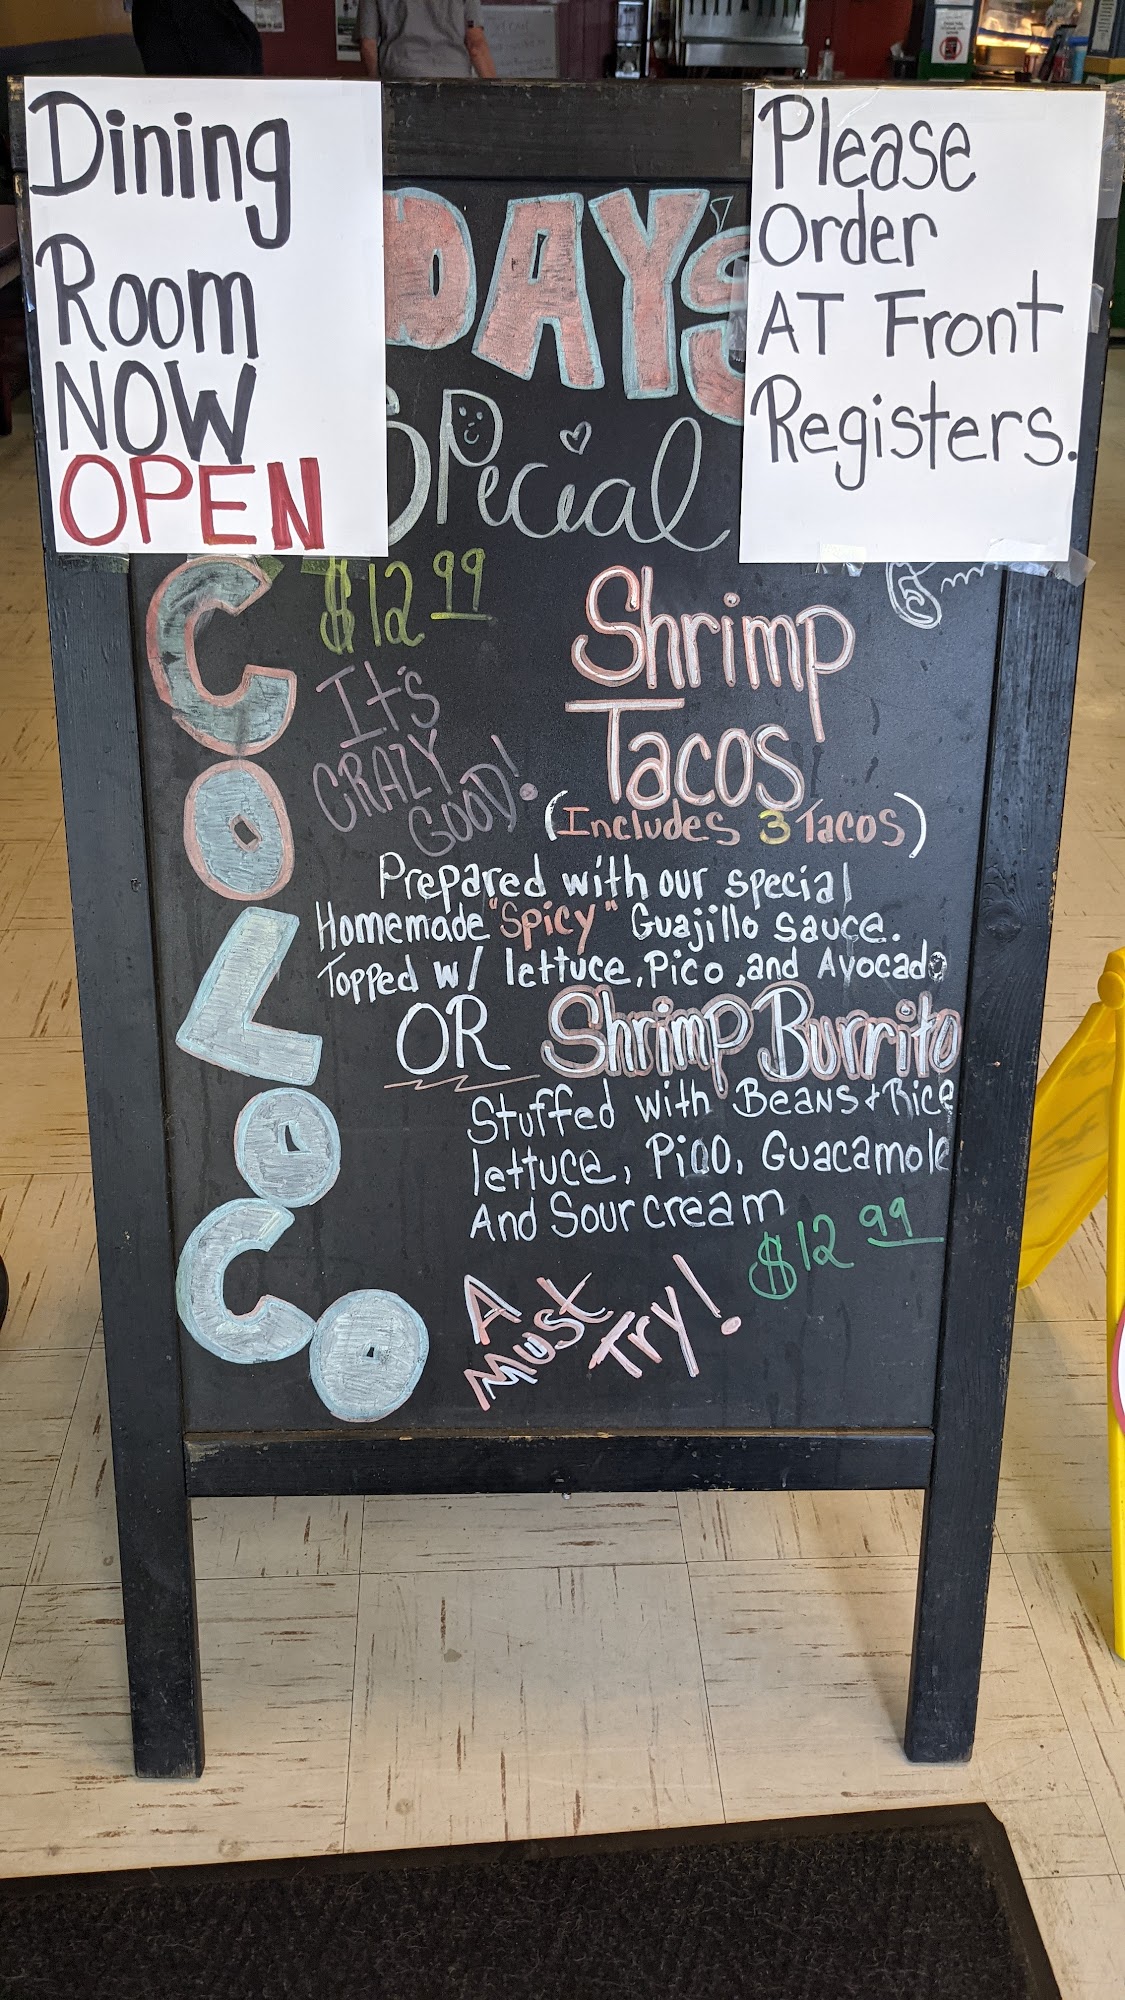 Dining
Room
NOW
OPEN
Please
Order
AT Front
Registers.
DAYS
Special
COLOCO
$12.99
It's
CRAZY
GOOD!
Shrimp
Tacos
(Includes 3 Tacos)
Prepared with our special
Homemade "Spicy" Guajillo sauce.
Topped w/ lettuce, Pico, and Avocado
OR Shrimp Burrito
Stuffed with Beans & Rice
lettuce, Pico, Guacamole
And Sour cream
$12.99
A
Must
Try!